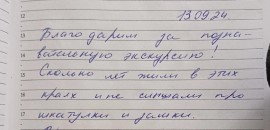 12 13.09.24.
13 Благодарим за позна-
14 вательную экскурсию!
15 Сколько лет жили в этих
16 краях и не слышали про
17 шкатулки и замки.